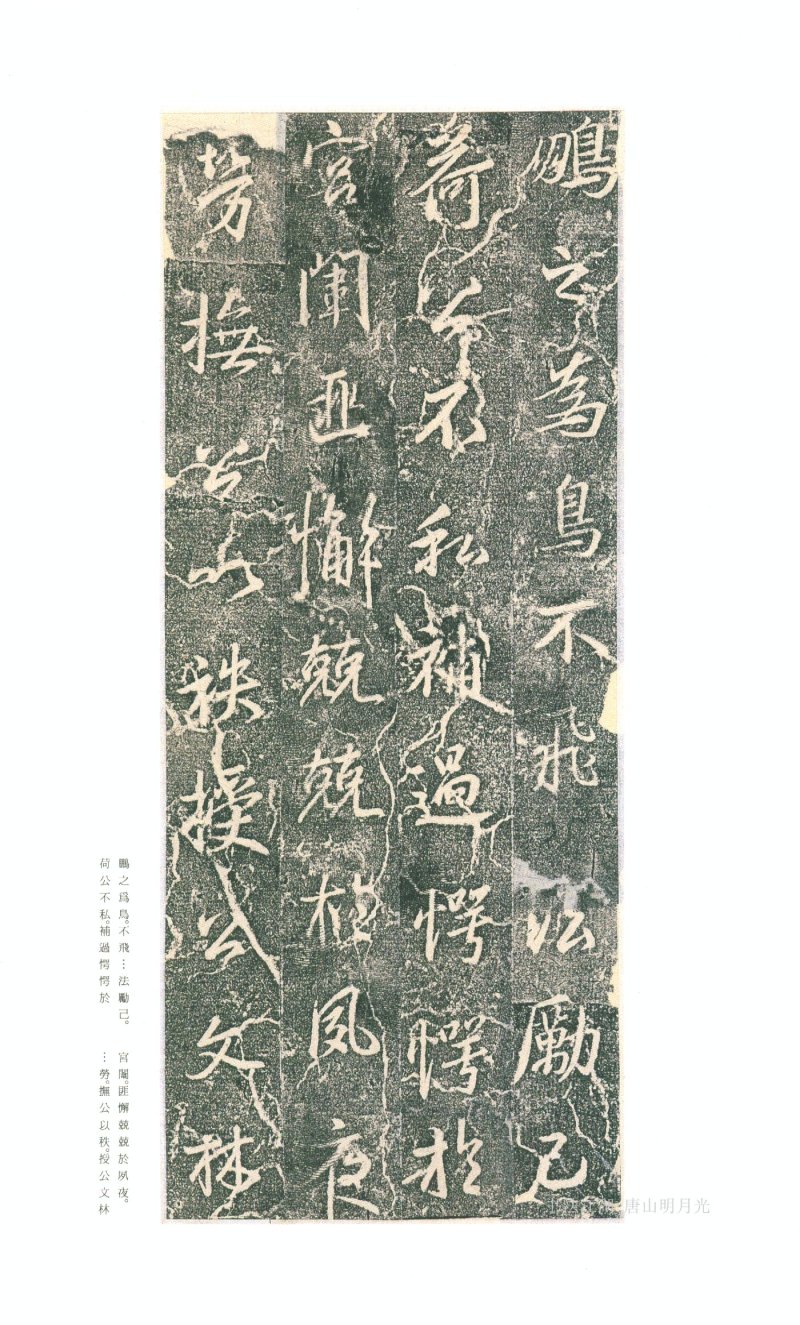 鵬之為鳥不飛法勵己
荷公不私補過愕愕於
宮闈匪懈兢兢於夙夜
勞撫公以秩授公文林
鵬之爲鳥。不飛…法勵己。
荷公不私。補過愕愕於
宮闈。匪懈兢兢於夙夜。
…勞。撫公以秩。授公文林
唐山明月光